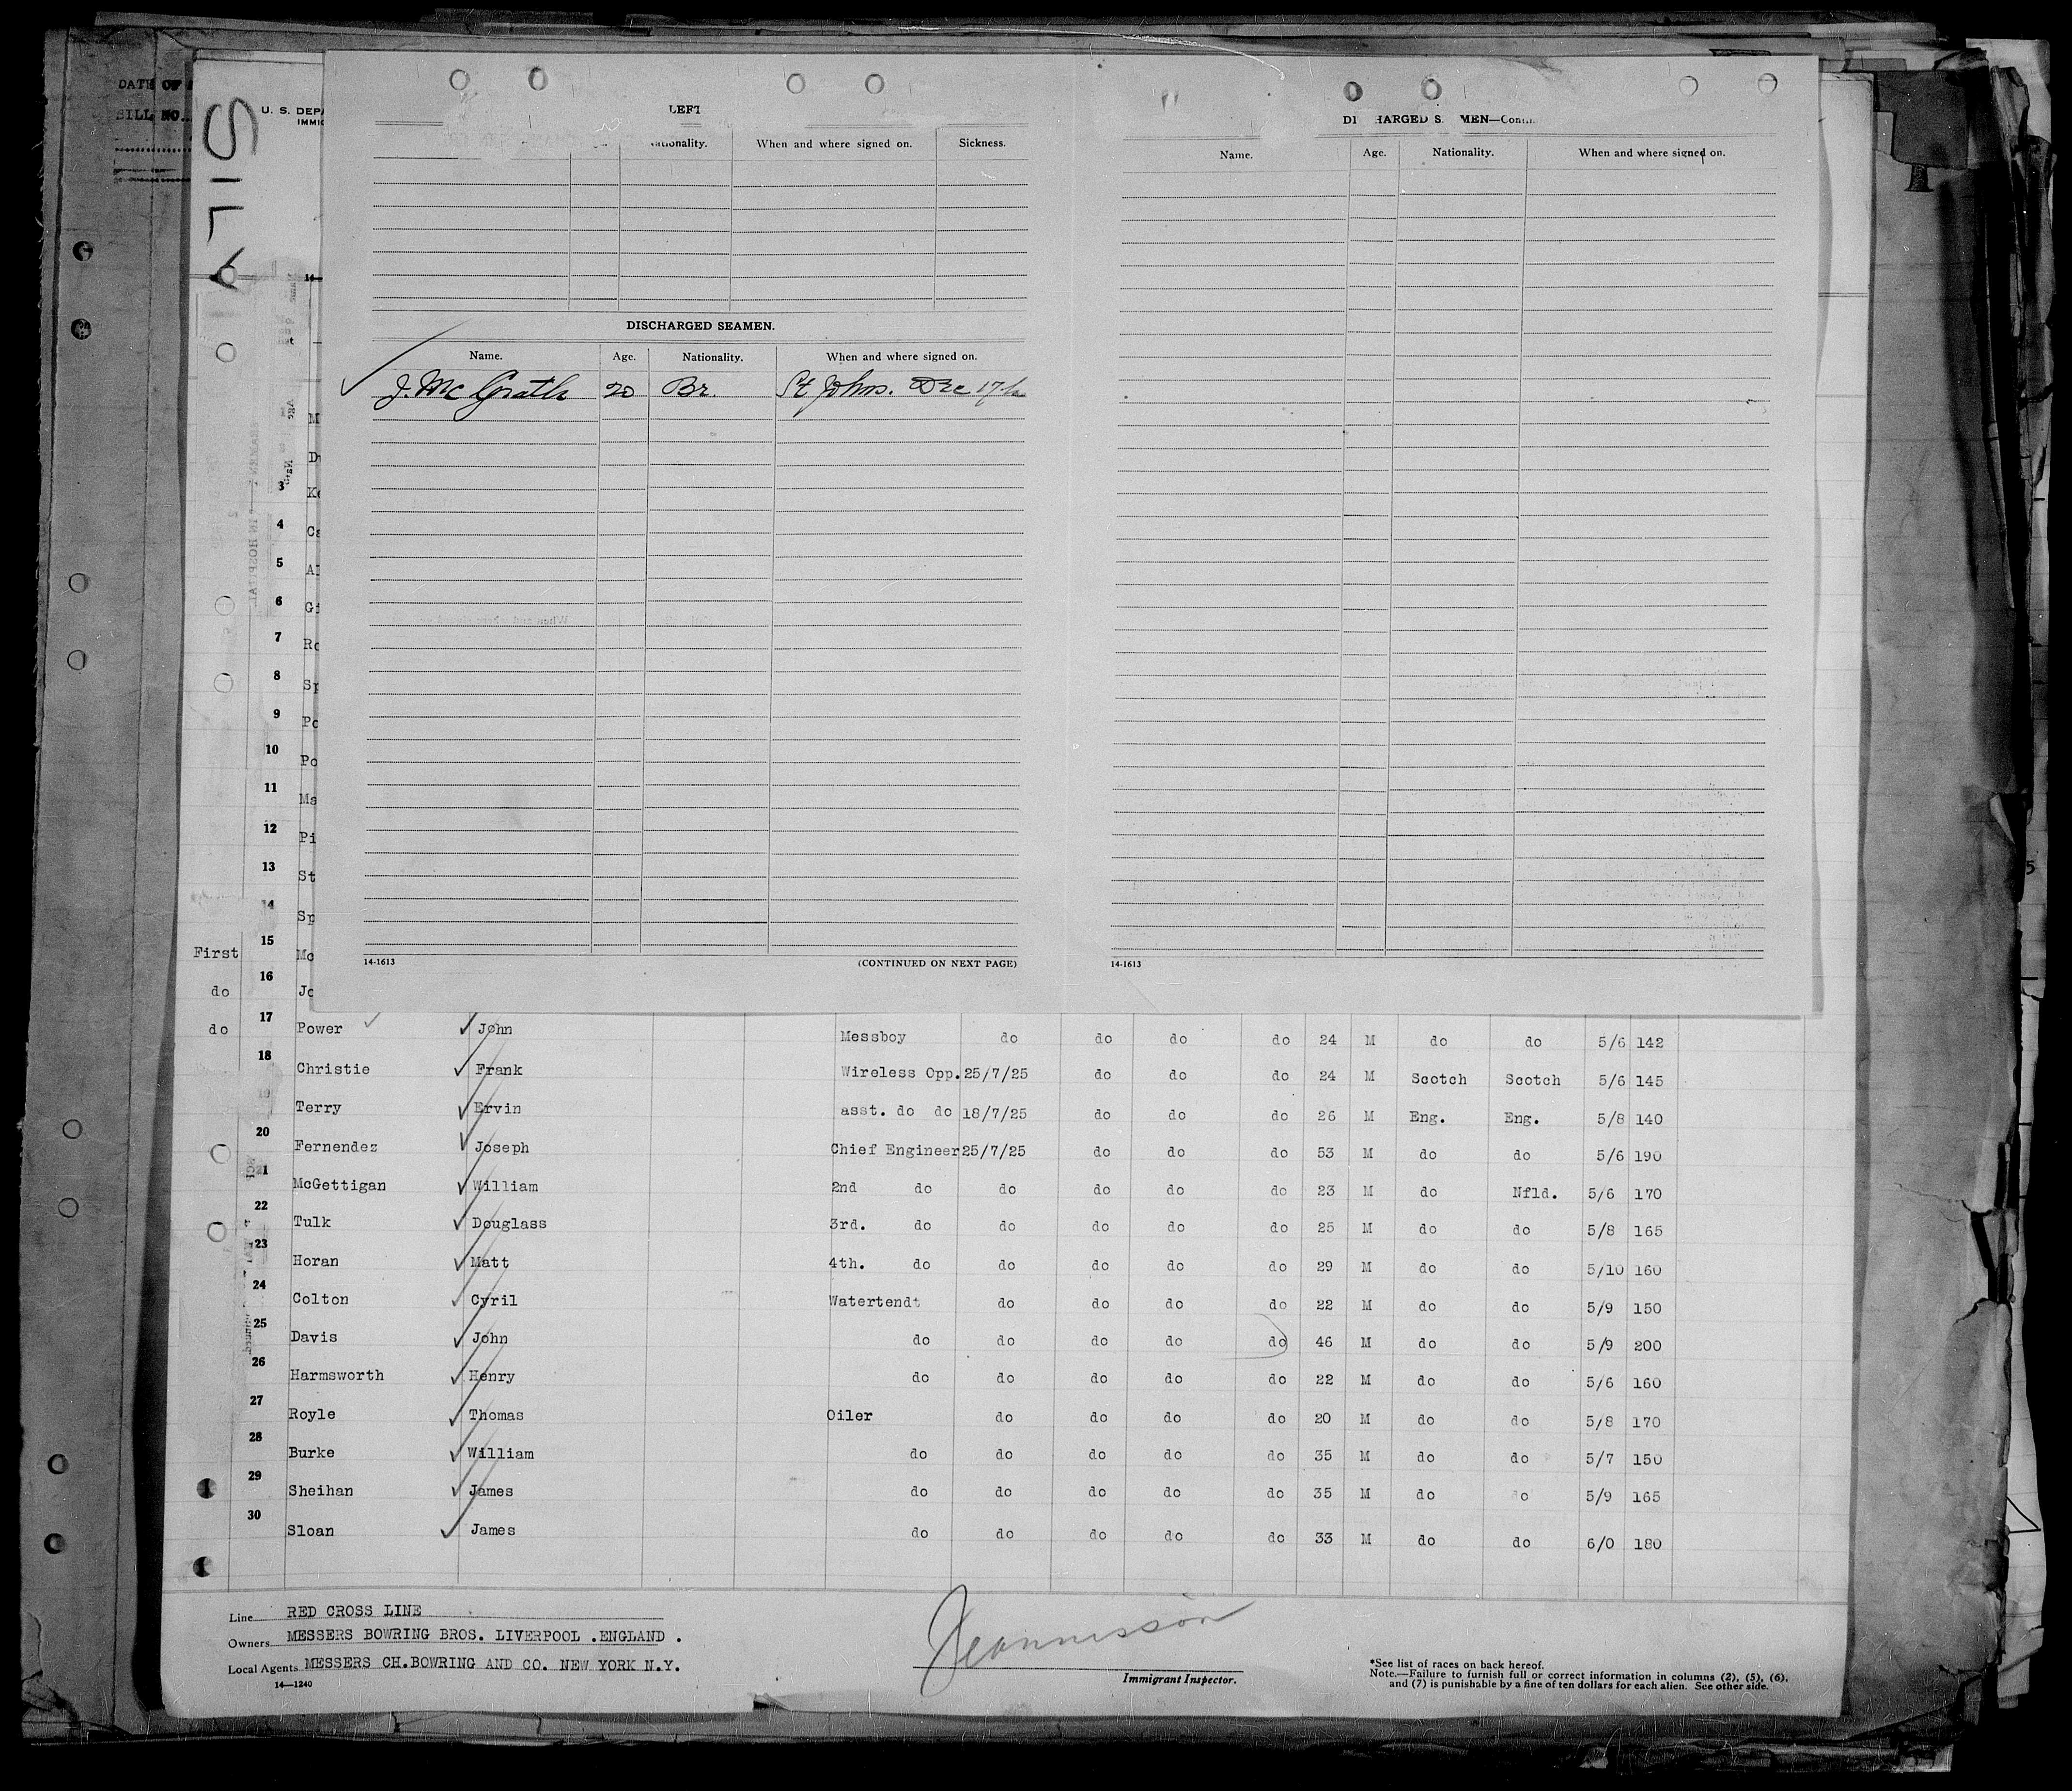 DATE OF
BILL NO.
SILV
U. S. DEPA
IMMIG
LEFT
Nationality. When and where signed on. Sickness.
DISCHARGED SEAMEN.
Name. Age. Nationality. When and where signed on.
J. McGrath 20 Br. St Johns. Dec 17th
14-1613 (CONTINUED ON NEXT PAGE)
DISCHARGED SEMEN—Contin.
Name. Age. Nationality. When and where signed on.
14-1613
3 Ke
4 Ca
5 Al
6 Gi
7 Ro
8 Sp
9 Po
10 Po
11 Ma
12 Pi
13 St
14 Sp
First 15 Mc
do 16 Jo
do 17 Power John Messboy do do do do 24 M do do 5/6 142
18 Christie Frank Wireless Opp. 25/7/25 do do do 24 M Scotch Scotch 5/6 145
19 Terry Ervin asst. do do 18/7/25 do do do 26 M Eng. Eng. 5/8 140
20 Fernendez Joseph Chief Engineer 25/7/25 do do do 53 M do do 5/6 190
21 McGettigan William 2nd do do do do do 23 M do Nfld. 5/6 170
22 Tulk Douglass 3rd. do do do do do 25 M do do 5/8 165
23 Horan Matt 4th. do do do do do 29 M do do 5/10 160
24 Colton Cyril Watertendt do do do do 22 M do do 5/9 150
25 Davis John do do do do do 46 M do do 5/9 200
26 Harmsworth Henry do do do do do 22 M do do 5/6 160
27 Royle Thomas Oiler do do do do 20 M do do 5/8 170
28 Burke William do do do do do 35 M do do 5/7 150
29 Sheihan James do do do do do 35 M do do 5/9 165
30 Sloan James do do do do do 33 M do do 6/0 180
Line RED CROSS LINE
Owners MESSERS BOWRING BROS. LIVERPOOL .ENGLAND .
Local Agents MESSERS CH.BOWRING AND CO. NEW YORK N.Y.
14—1240
Immigrant Inspector.
*See list of races on back hereof.
Note.—Failure to furnish full or correct information in columns (2), (5), (6),
and (7) is punishable by a fine of ten dollars for each alien. See other side.